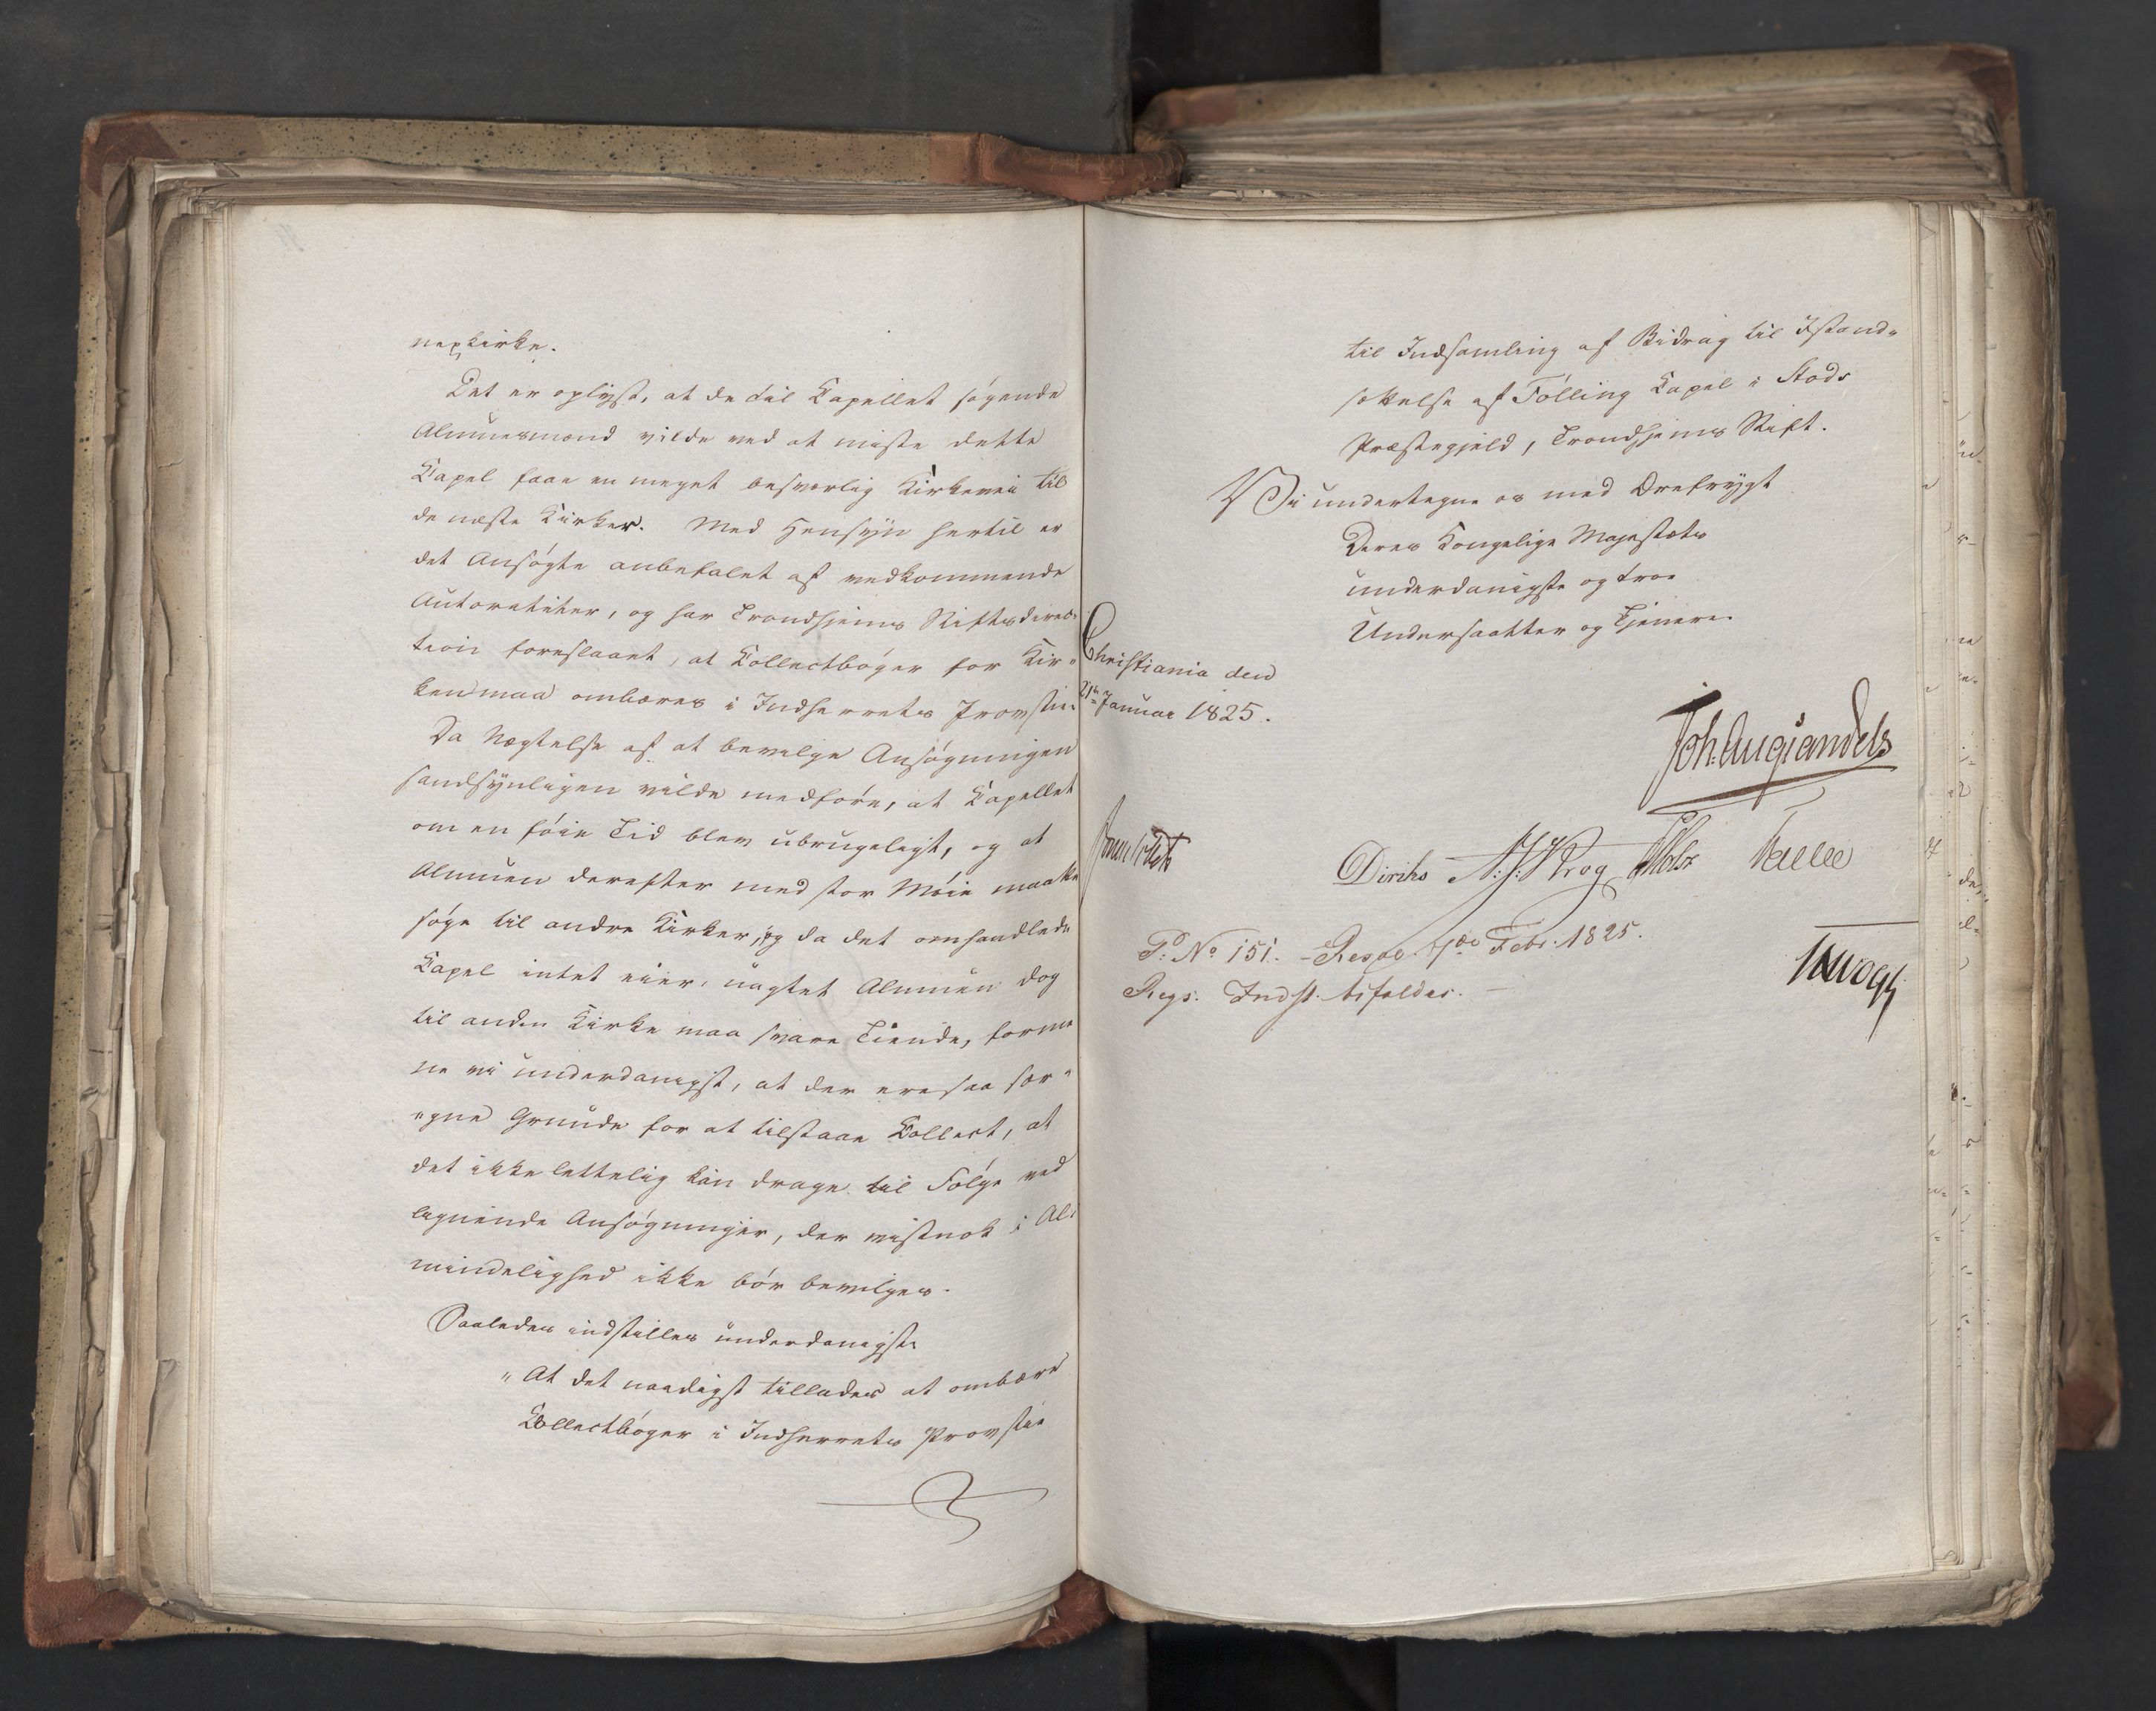 neskirke.
Det er oplyst, at de til Capellet søgende
Almuesmænd vilde ved at miste dette
Capel faae en meget besværlig Kirkevei til
de næste Kirker. Med Hensyn hertil er
det Ansøgte anbefalet af vedkommende
Autoriteter, og har Trondhjems Stiftsdirec-
tion foreslaaet, at Collectbøger for Kir-
ken maa ombæres i Indherrets Provstie.
Da Nægtelse af at bevilge Ansøgningen
sandsynligen vilde medføre, at Capellet
om en føie Tid blev ubrugeligt, og at
Almuen derefter med stor Møie maatte
søge til andre Kirker, og da det omhandlede
Capel intet eier, uagtet Almuen dog
til anden Kirke maa svare Tiende, forme
ne vi underdanigst, at der ere saa sær-
egne Grunde for at tilstaae Collect, at
det ikke lettelig kan drage til Følge ved
lignende Ansøgninger, der vistnok i Al-
mindelighed ikke bør bevilges.
Saaledes indstilles underdanigst:
"At det naadigst tillades at ombære
Collectbøger i Indherrets Provstie
til Indsamling af Bidrag til Istand-
sættelse af Følling Capel i Stods
Præstegjeld, Trondhjems Stift.
Vi undertegne os med Ærefrygt
Deres Kongelige Majestæts
underdanigste og troe
Undersaatter og Tjenere.
Christiania den
21de Januar 1825.
Joh: Aug: Sandels
Diriks N: J: Krog Holst Treschow
P: No 151. - Resol. 7de Febr. 1825.
Regs. Indst. bifaldes. -